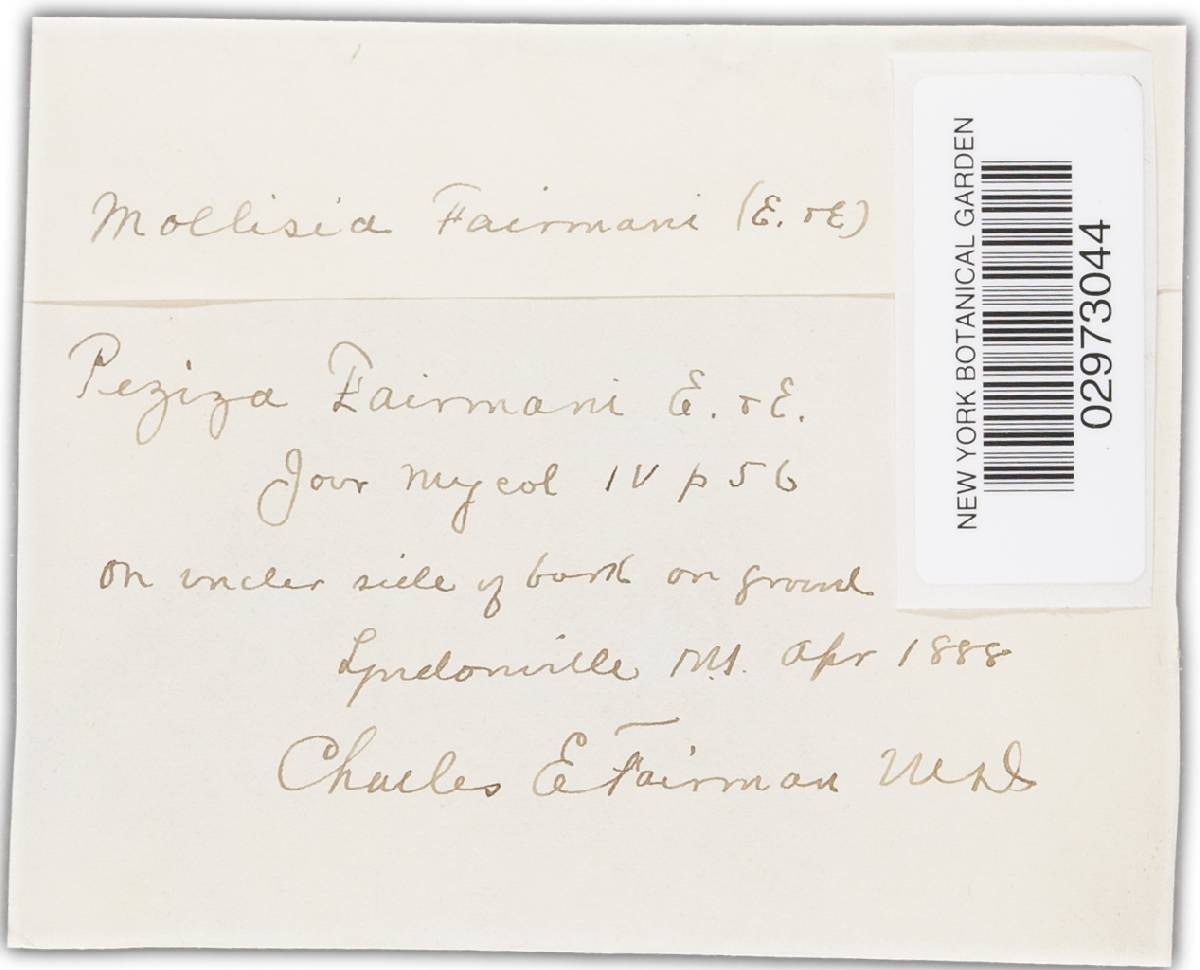 Mollisia Fairmani (E. & E)
Peziza Fairmani E. & E.
Jour Mycol IV p 56
on under side of bark on ground
Lyndonville N.Y. Apr 1888
Charles E Fairman M D
NEW YORK BOTANICAL GARDEN
02973044